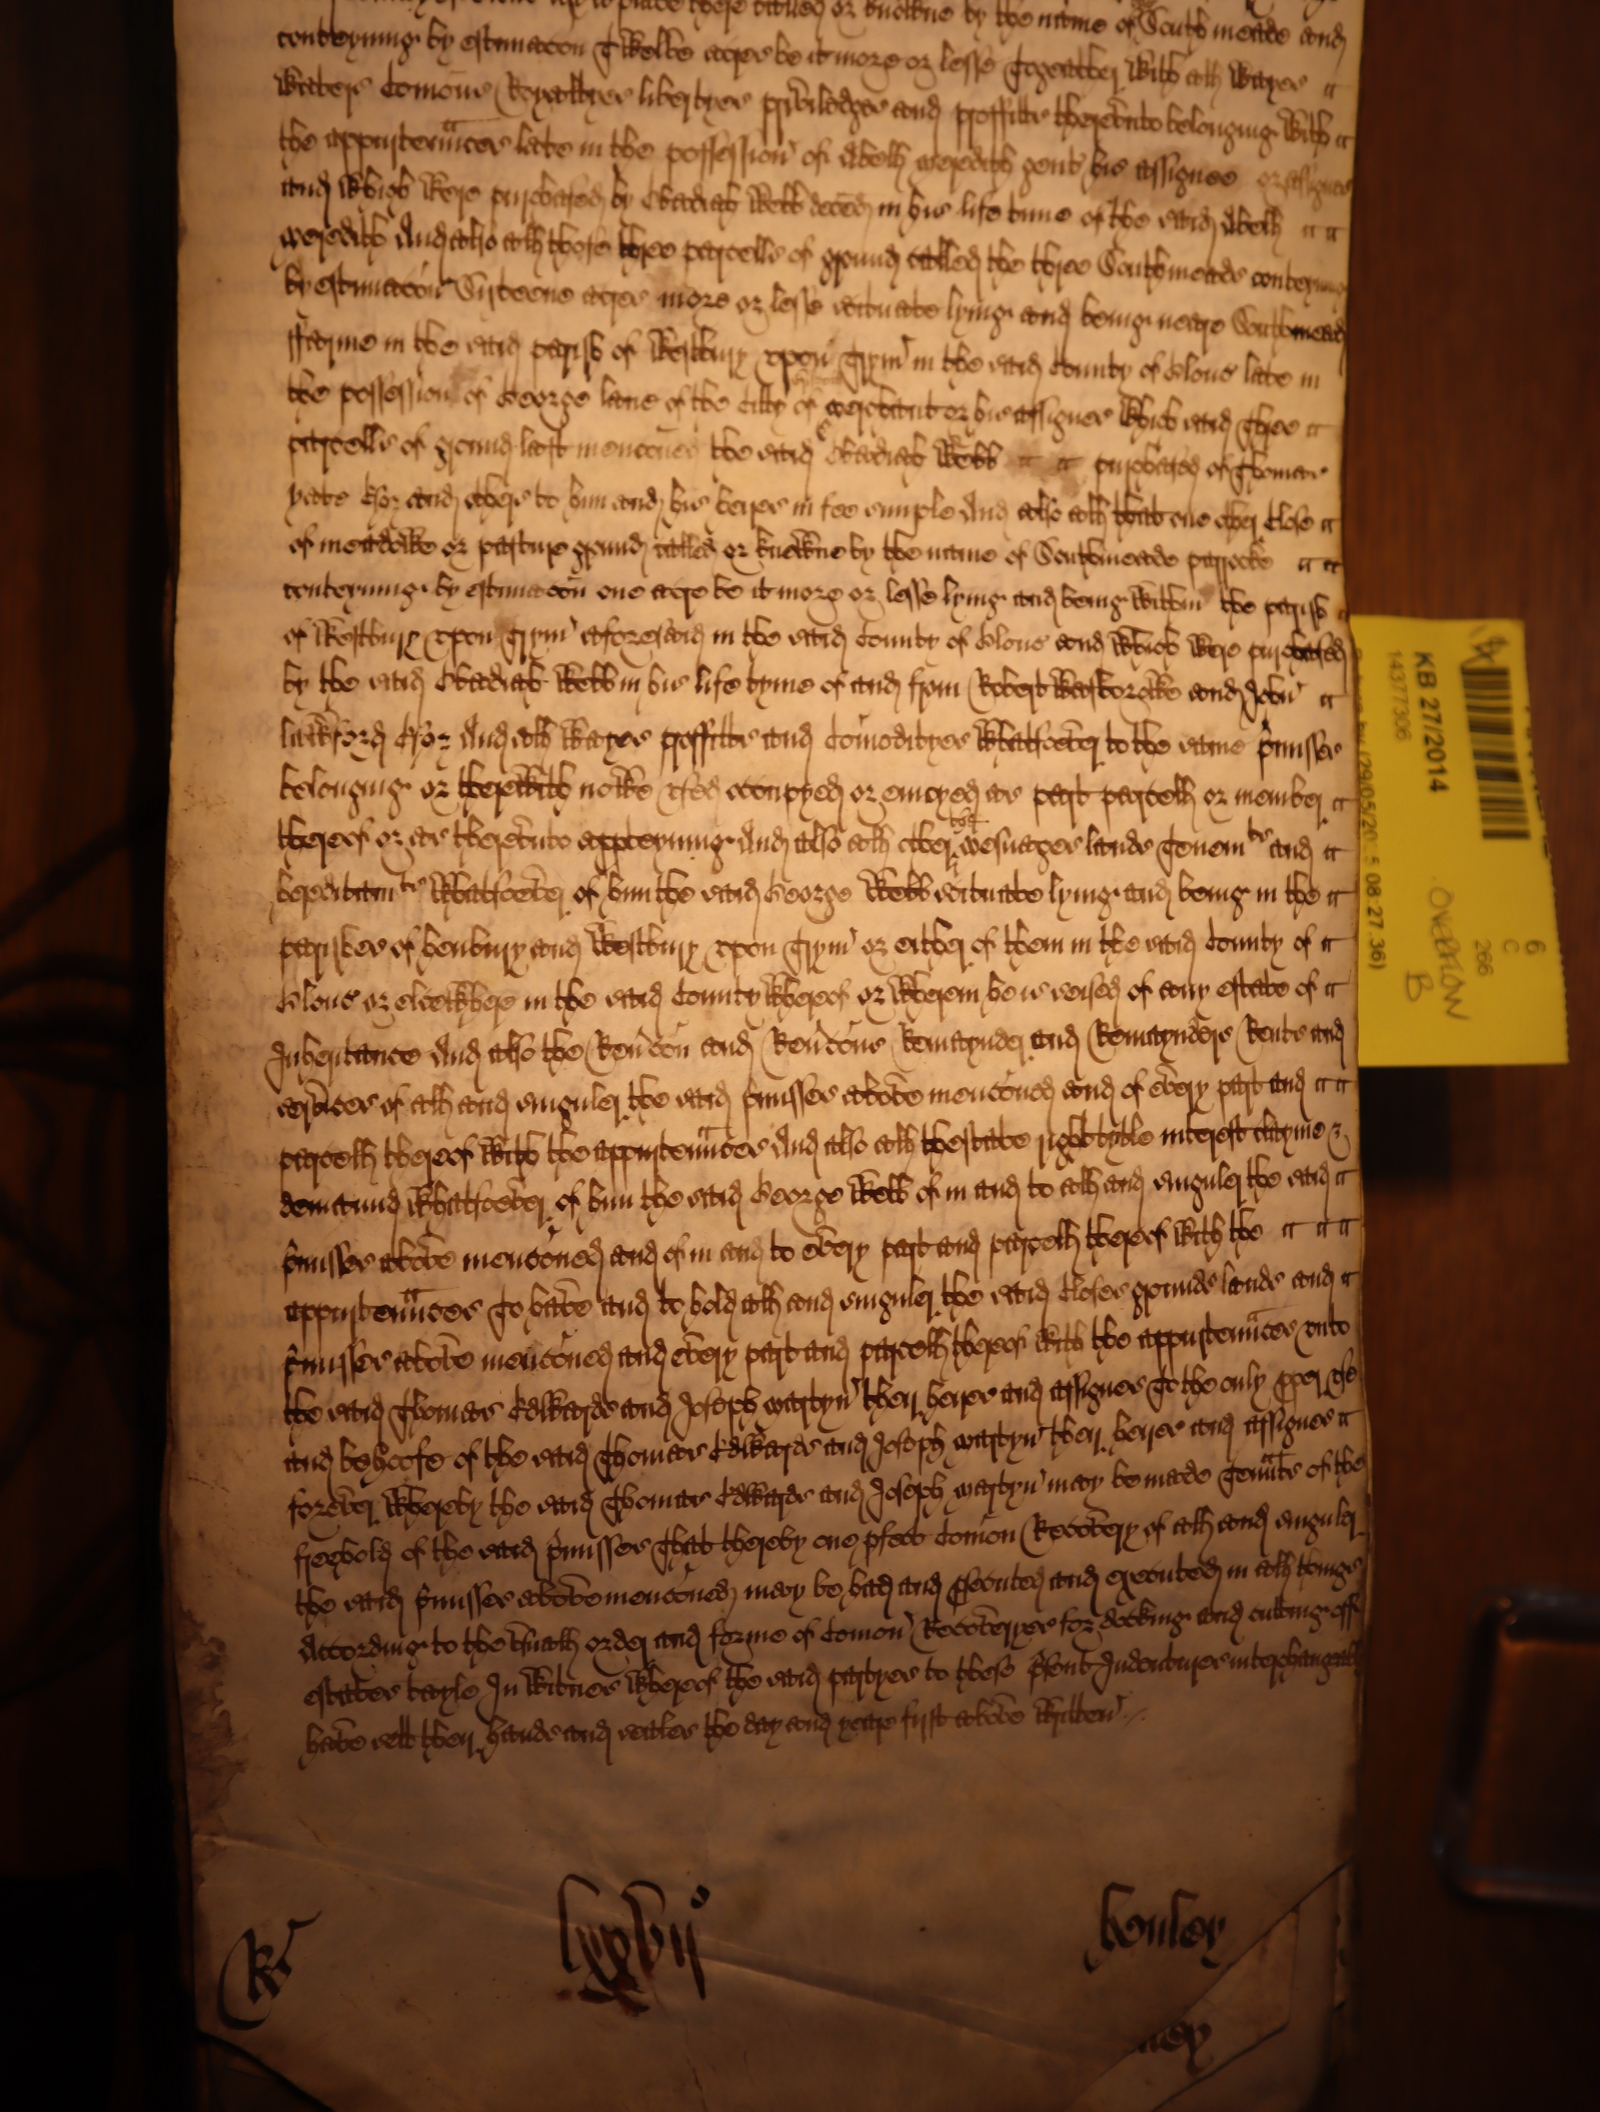 called or knowne by the name of Southmeade and
conteyning by estimacon Twelve acres be it more or lesse Togeather with all wayes
waters Comons Royaltyes libertyes priviledges and proffitts therevnto belonging with
the appurtennces late in the possession of Abell Meredith gent his assignee or assignes
and which were purchased by Obadiah Webb deced in his life time of the said Abell
Meredith And also all those three parcells of ground called the three Southmeads conteyning
by estimacon Sixteene acres more or lesse scituate lying and being neare Southmead
ffarme in the said parish of Westbury vpon Trym in the said County of Glouc late in
the possession of George lane of the Citty of merchant or his assignes which said Three
parcells of ground last menconed the said Obadiah Webb purchased of Thomas
yate Esqr and others to him and his heires in fee simple And also all that one other Close
of meadowe or pasture ground called or knowne by the name of Southmeade parrocke
conteyning by estimacon one acre be it more or lesse lying and being within the parish
of Westbury vpon Trym aforesaid in the said County of Glouc and which were purchased
by the said Obadiah Webb in his life tyme of and from Robert and John
Esqr And all wayes proffitts and Comodityes whatsoever to the same pmisses
belonging or therewith nowe vsed occupyed or enioyed as part parcell or member
thereof or as therevnto apperteyning And also all other the Mesuages lands Tenemts and
hereditamts whatsoever of him the said George Webb scituate lying and being in the
parishes of henbury and Westbury vpon Trym or either of them in the said County of
Glouc or elsewhere in the said County whereof or wherein he is seised of any estate of
Inheritance And also the Revcon and Revcons Remaynder and Remaynders Rents and
services of all and singuler the said pmisses above menconed and of every part and
parcell thereof with the appurtennces And also all thestate right tytle interest clayme &
demaund whatsoever of him the said George Webb of in and to all and singuler the said
pmisses above menconed and of in and to every part and parcell thereof with the
appurtennces To have and to hold all and singuler the said Closes grounds lands and
pmisses above menconed and every part and parcell thereof with the appurtennces vnto
the said Thomas Edwards and Joseph Martyn their heires and assignes To the only pper vse
and behoofe of the said Thomas Edwards and Joseph Martyn their heires and assignes
forever Whereby the said Thomas Edwards and Joseph Martyn may be made Tennts of the
freehold of the said pmisses That thereby one pfect Comon Recovery of all and singuler
the said pmisses above menconed may be had and psecuted and executed in all things
According to the vsuall order and forme of Comon Recoveryes for docking and cutting off
estates tayle In Witnes whereof the said partyes to these psent Indentures interchangeably
have sett their hands and seales the day and yeare first above written
lxxvijo
henley
KB 27/2014
14377306
(29/05/2015 08:27:36)
OVERFLOW
B
266
C
6